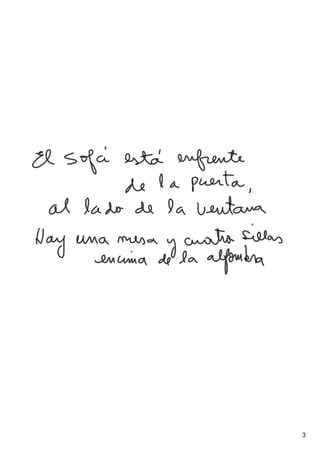 El sofá está enfrente
de la puerta,
al lado de la ventana
Hay una mesa y cuatro sillas
encima de la alfombra
3